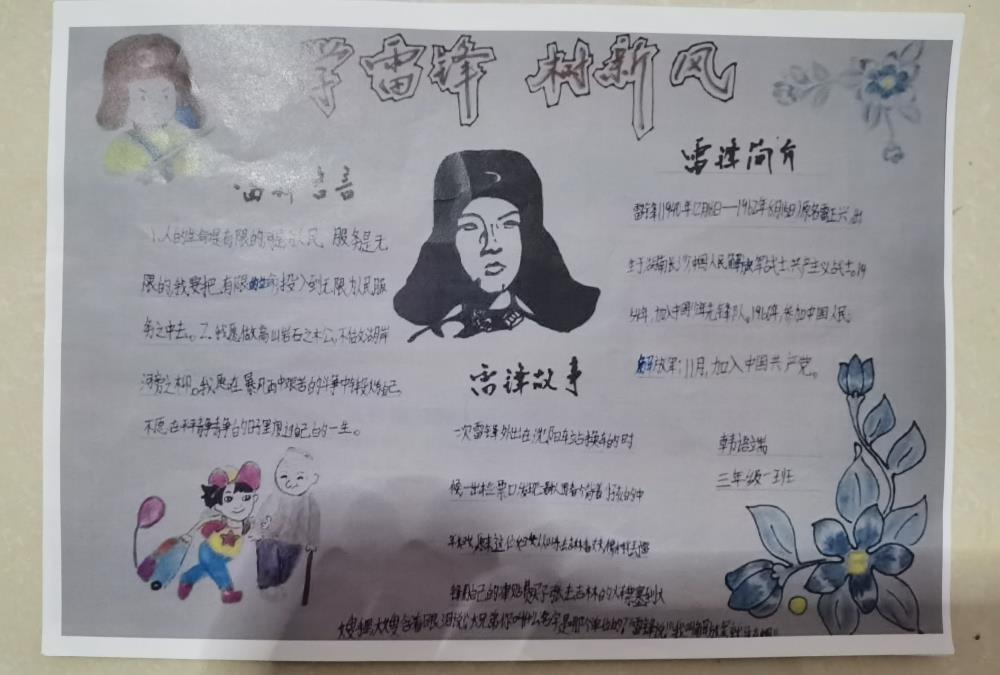 学雷锋 树新风
雷锋名言
1、人的生命是有限的,可是为人民服务是无
限的,我要把有限的生命,投入到无限为人民服
务之中去。2、我愿做高山岩石之木公,不做湖岸
河旁之柳。我愿在暴风雨中艰苦的斗争中锻炼自己,
不愿在平静的日子里度过自己的一生。
雷锋简介
雷锋(1940年12月18日——1962年8月15日)原名雷正兴,出
生于湖南长沙,中国人民解放军战士,共产主义战士。19
54年,加入中国少年先锋队。1960年,参加中国人民
解放军;11月,加入中国共产党。
韩语端
三年级一班
雷锋故事
一次雷锋外出在沈阳车站换车的时
候一出检票口发现一群人围着个背着小孩的中
年妇女,原来这位妇女从山东去吉林看丈夫
锋用自己的津贴费买了一张去吉林的火车票塞到大
嫂手里,大嫂含着眼泪说:“大兄弟你叫什么名字是哪个单位的?”雷锋说:“我叫解放军